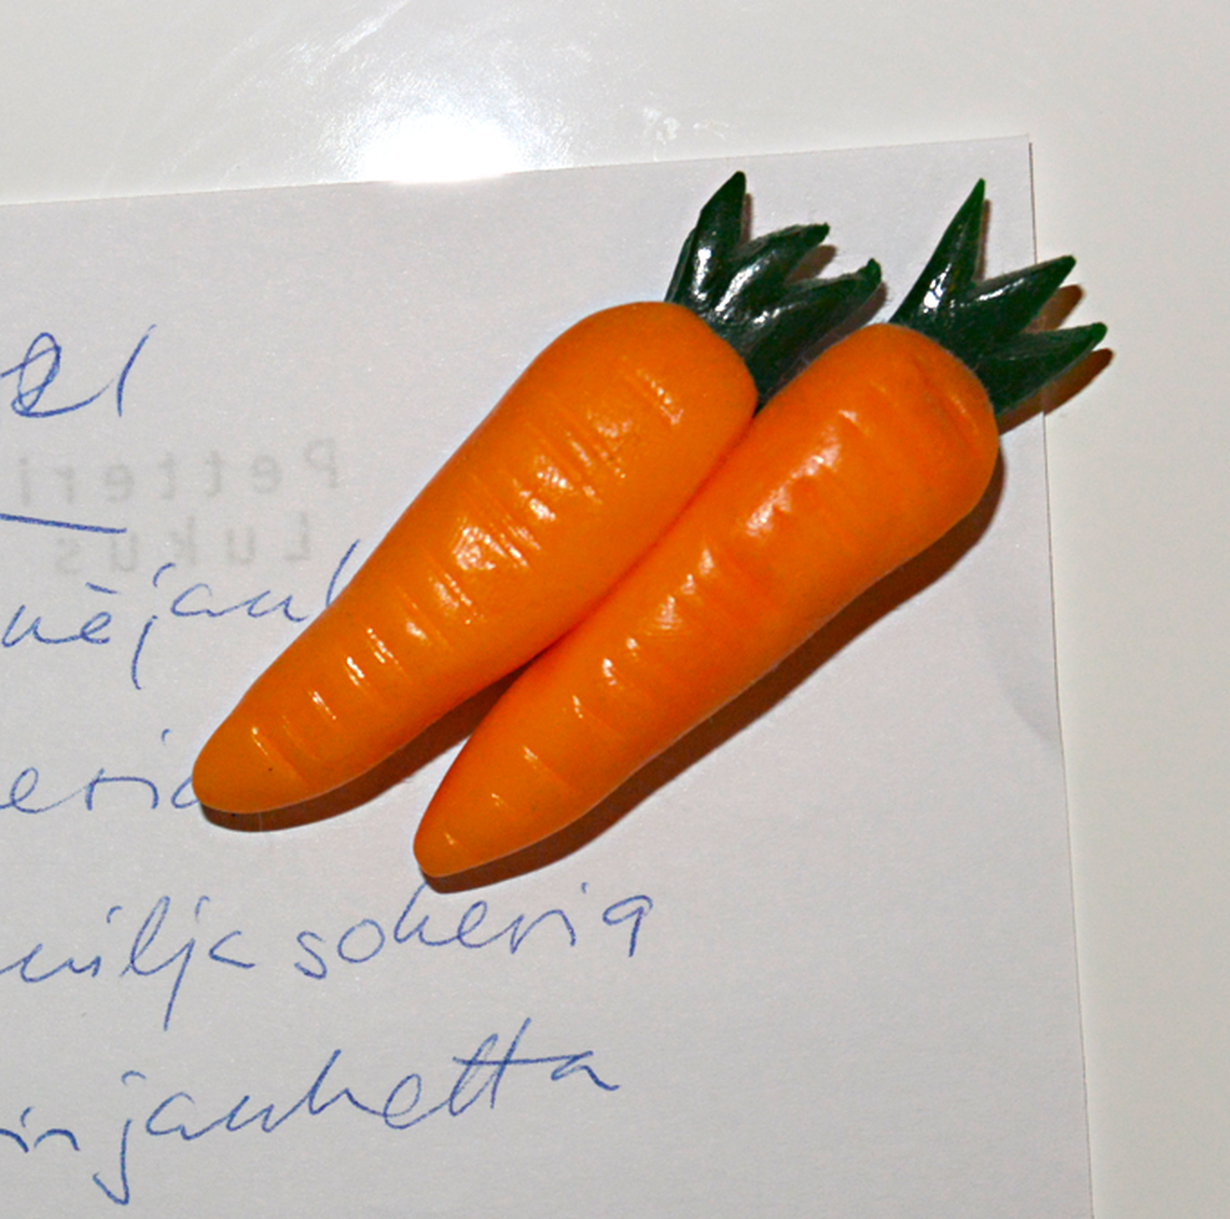 Petteri
Lukus
nejauh
eria
nilja sokeria
in jauhetta